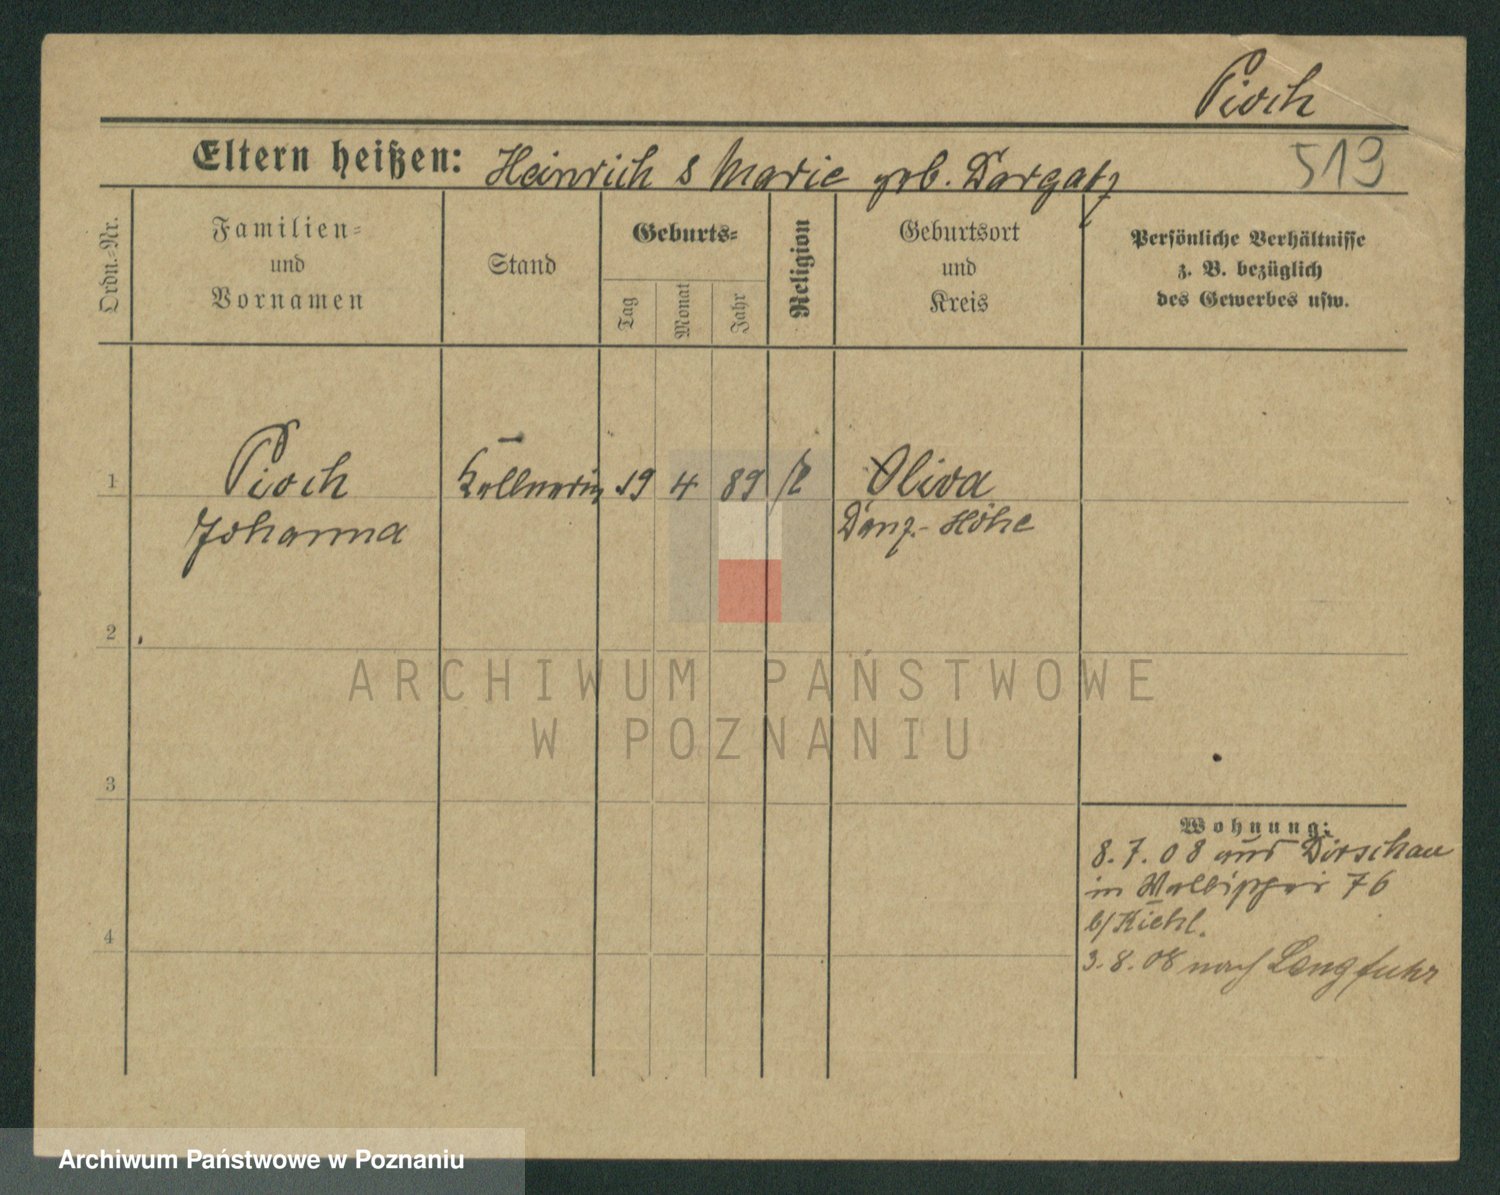 Pioch
Eltern heißen: Heinrich & Marie geb. Dargatz
519
Ordn.-Nr.
Familien-
und
Vornamen
Stand
Geburts-
Tag
Monat
Jahr
Religion
Geburtsort
und
Kreis
Persönliche Verhältnisse
z. B. bezüglich
des Gewerbes usw.
1
Pioch
Johanna
Kellnerin
19
4
89
Oliva
Danz.-Höhe
2
3
4
Wohnung:
8.7.08 aus Dirschau
in 76
b/Kiehl.
3.8.08 nach Langfuhr
ARCHIWUM PAŃSTWOWE
W POZNANIU
Archiwum Państwowe w Poznaniu